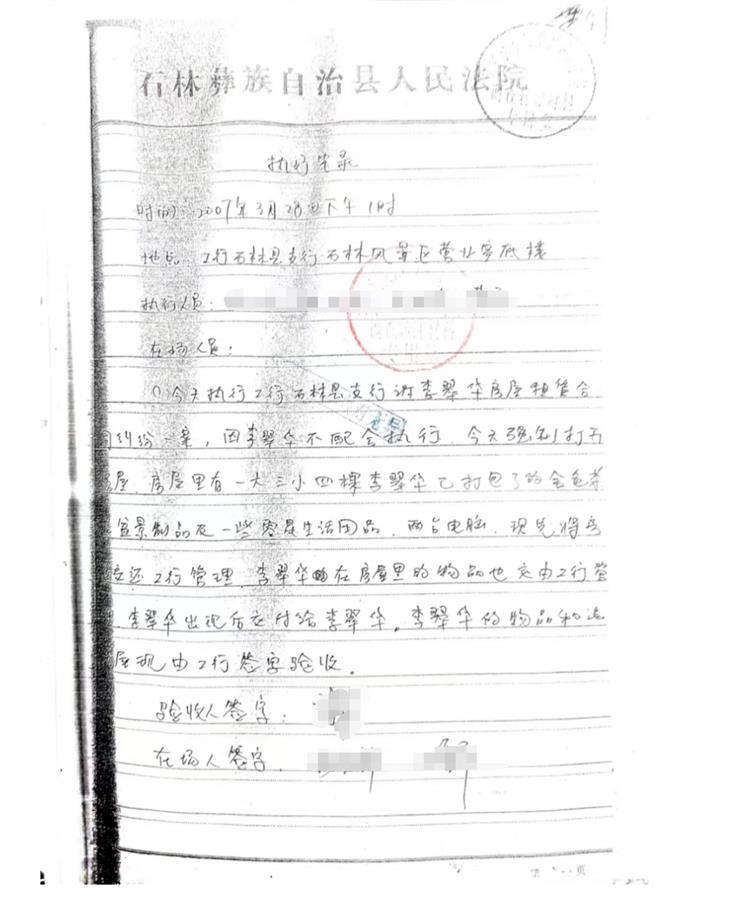 石林彝族自治县人民法院
执行笔录
时间:2007年3月28日下午1时
地点:工行石林县支行石林风景区营业室底楼
执行人员:
在场人员:
今天执行工行石林县支行诉李翠华房屋租赁合
纠纷一案,因李翠华不配合执行,今天强制打开
屋,房屋里有一大三小四棵李翠华已打包了的金色茶
盆景制品及一些零星生活用品,两台电脑,现先将房
还工行管理,李翠华在房屋里的物品也交由工行管
李翠华出现后交付给李翠华。李翠华的物品和
屋现由工行签字验收。
验收人签字:
在场人签字:
第 页